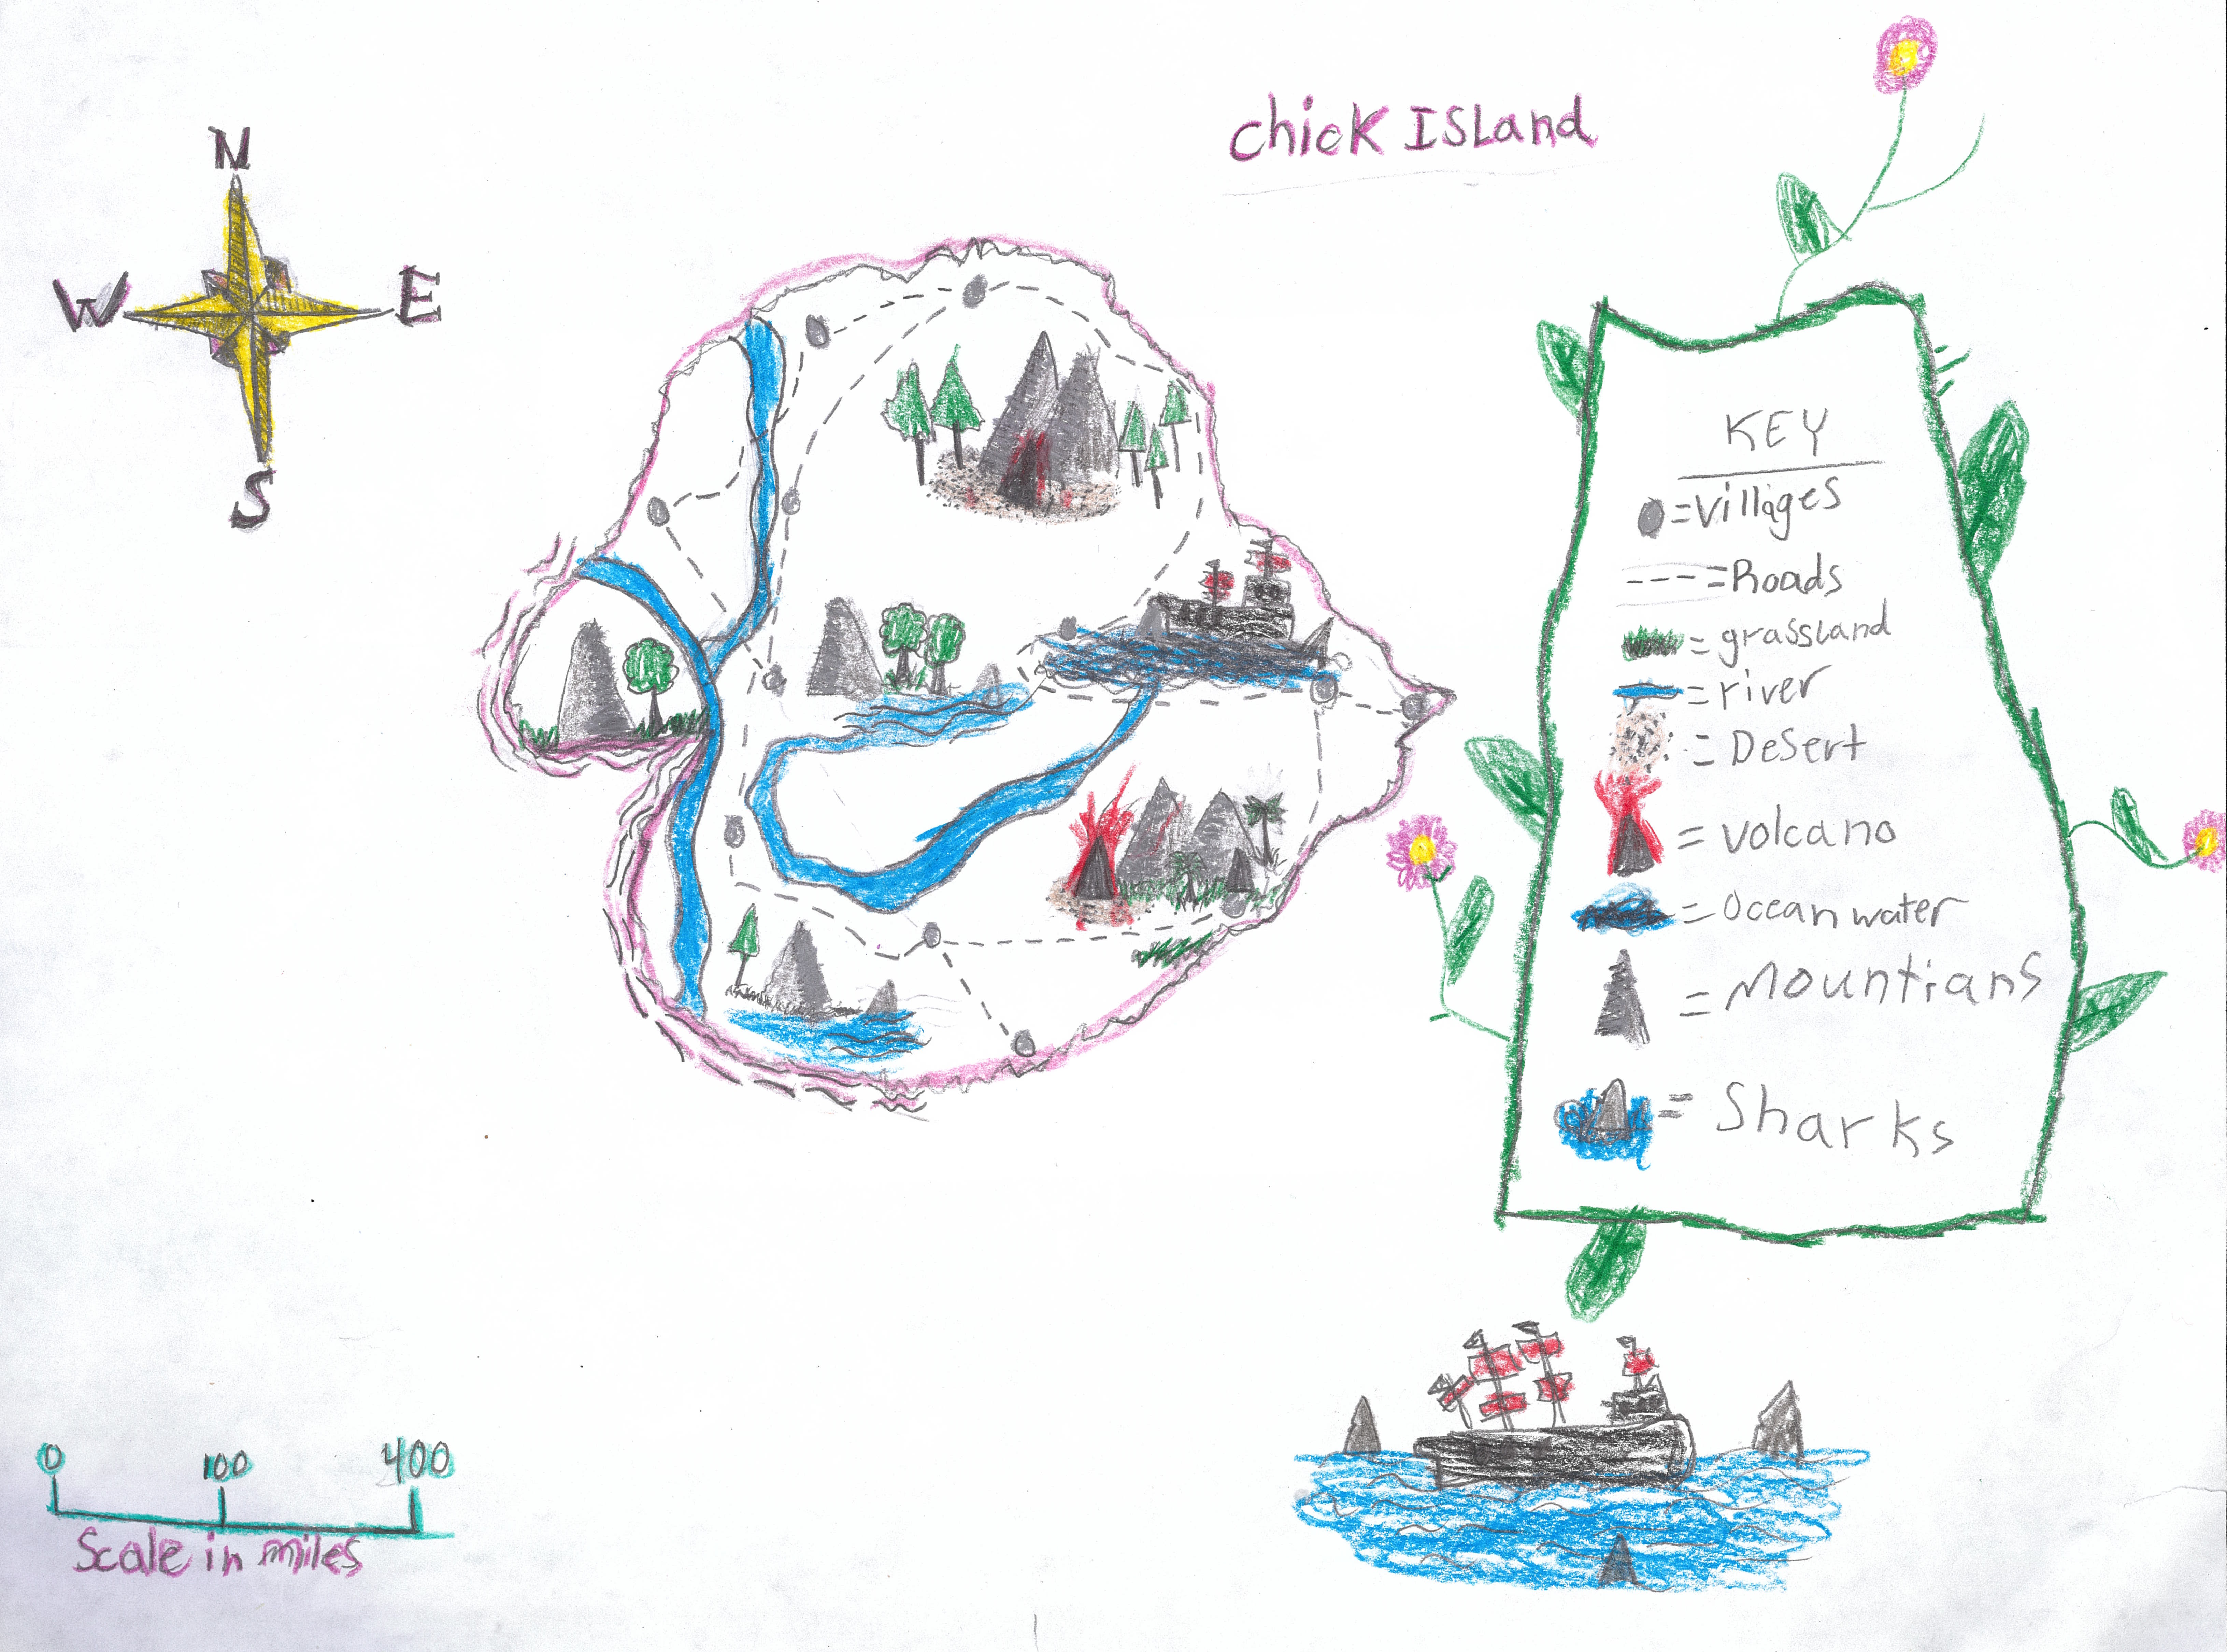 chick ISLand
N
W E
S
KEY
=Villages
=Roads
=grassland
=river
=Desert
=volcano
=Ocean water
=Mountians
=Sharks
0 100 400
Scale in miles